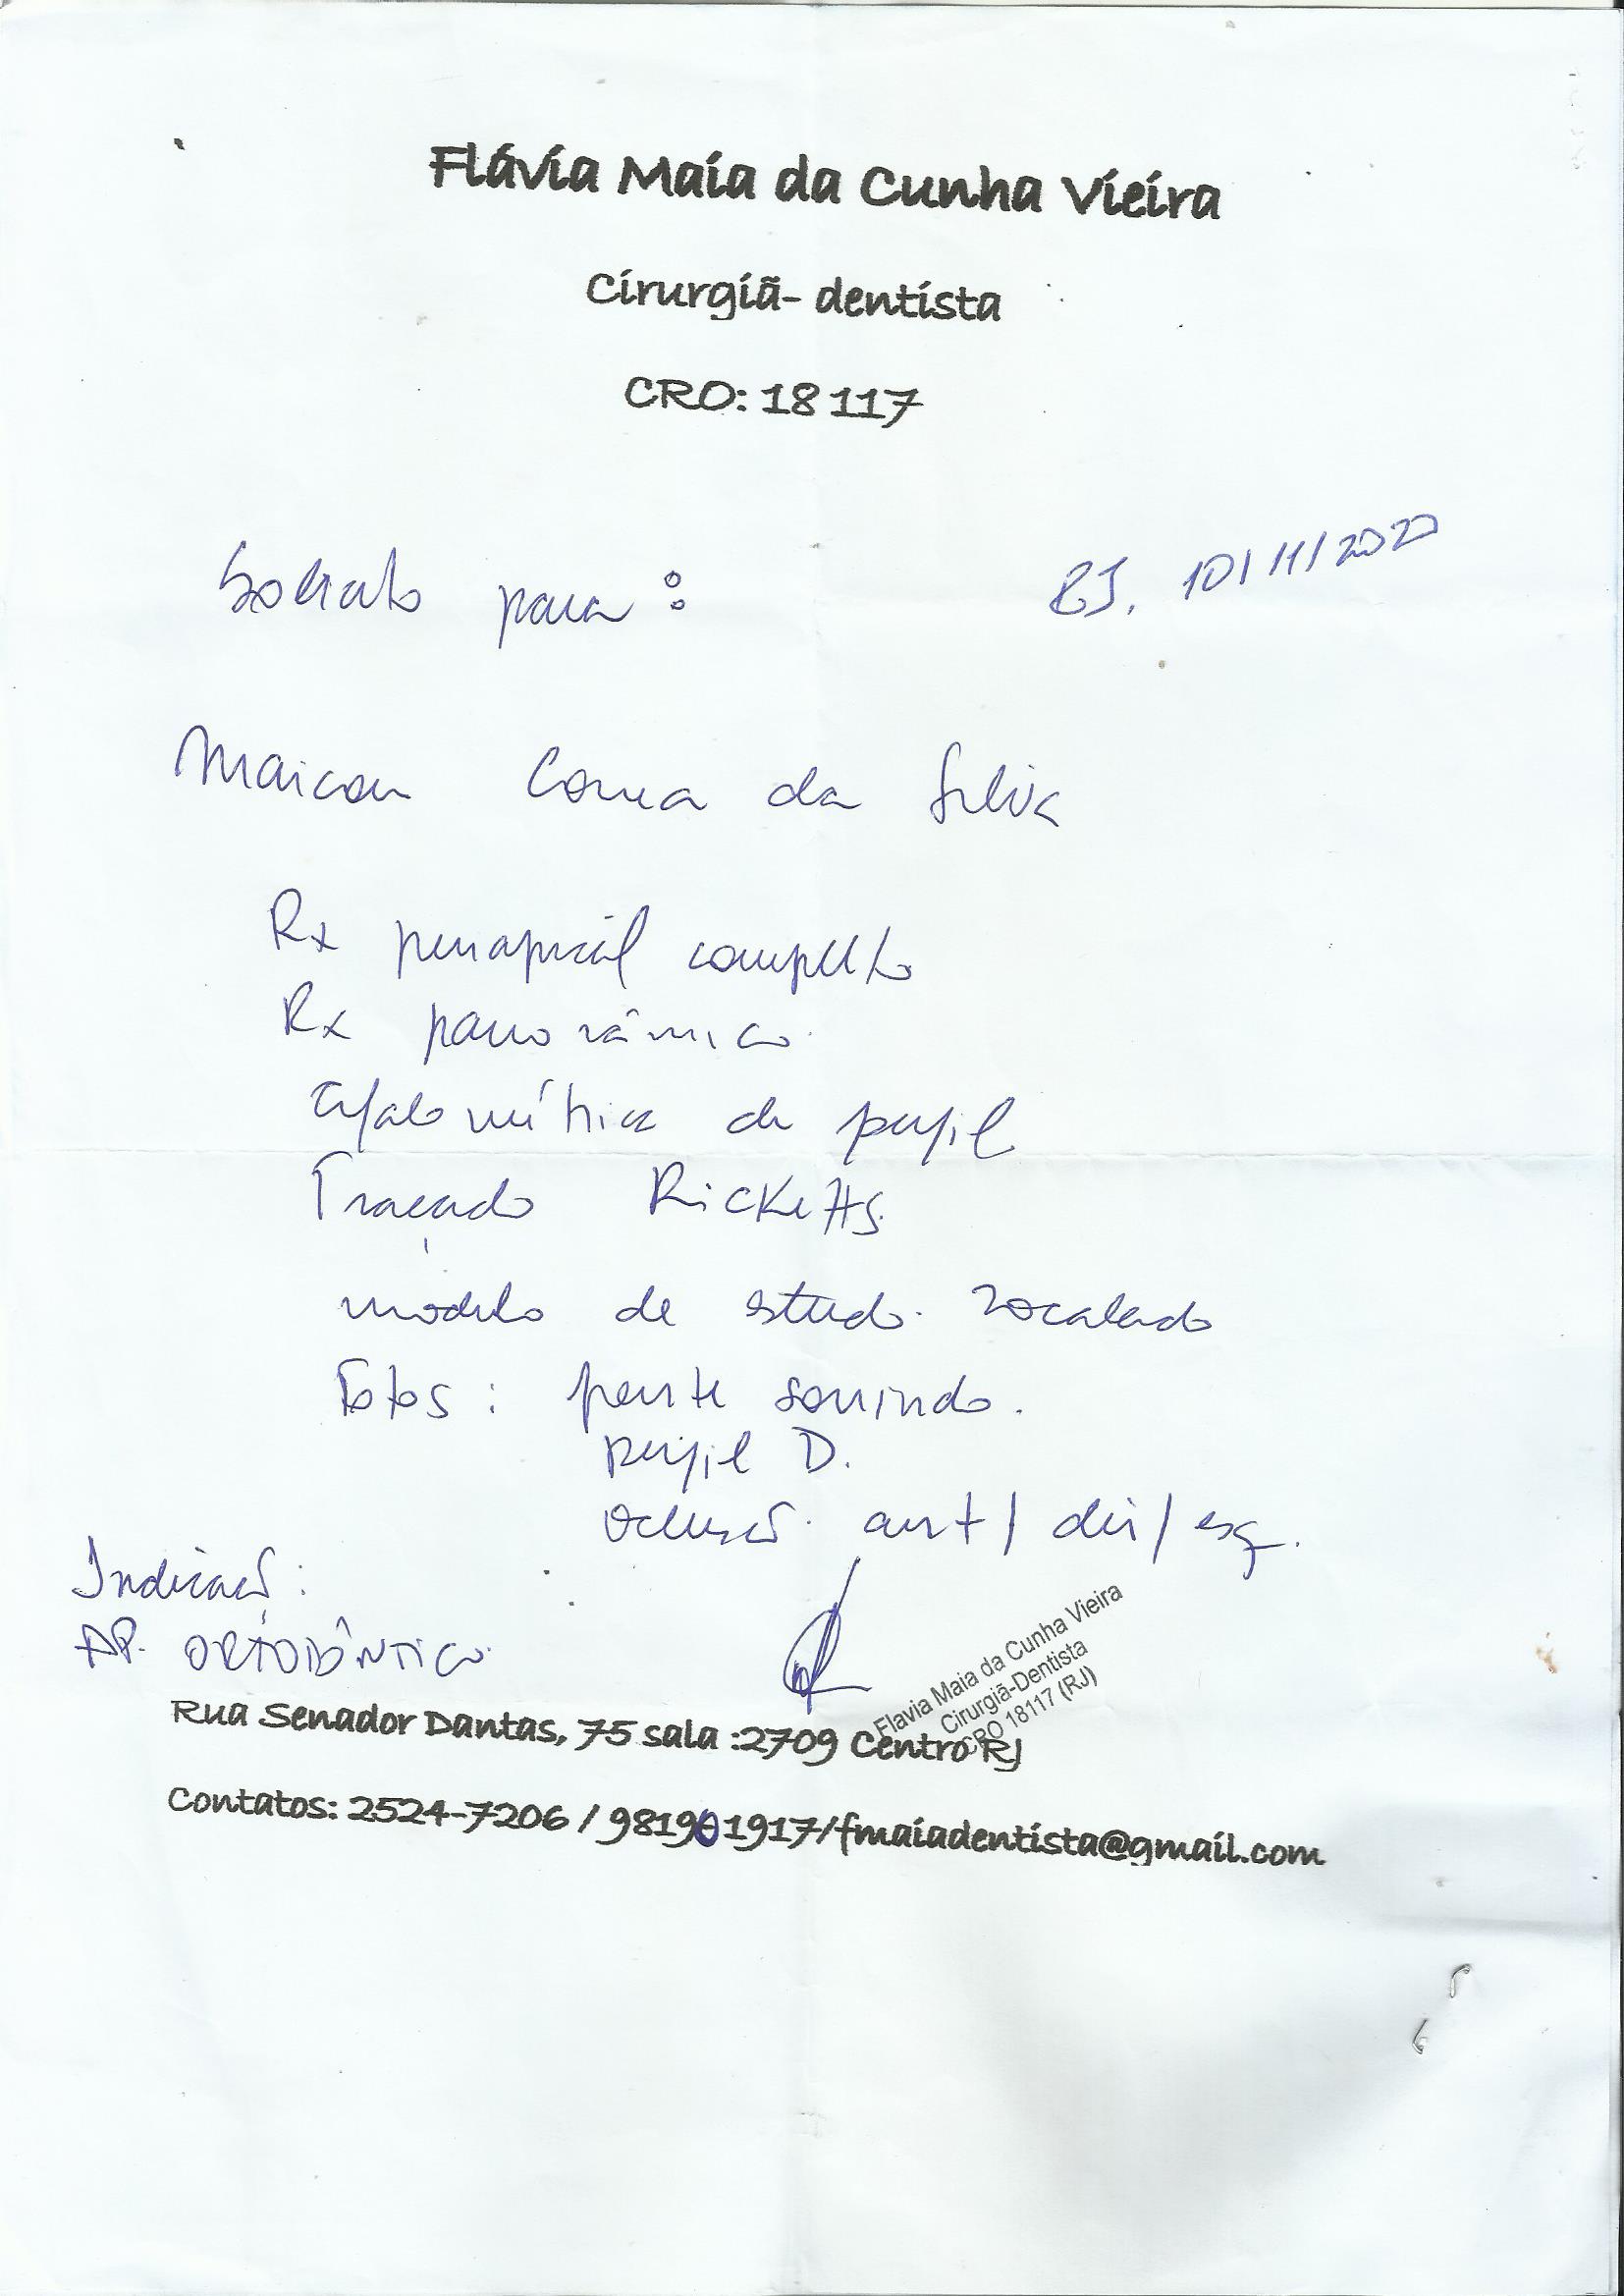 Flávia Maia da Cunha Vieira
Cirurgiã- dentista
CRO: 18 117
RJ, 10/11/2022
Solicito para :
Maicon Correa da Silva
Rx periapical completo
Rx panorâmico
Cefalométrica de perfil
Traçado Ricketts.
modelo de estudo zocalado
Fotos : frente sorrindo.
perfil D.
oclusão ant / dir / esq.
Indicação :
AP. ORTODÔNTICO
Flavia Maia da Cunha Vieira
Cirurgiã-Dentista
CRO 18117 (RJ)
Rua Senador Dantas, 75 sala :2709 Centro RJ
Contatos: 2524-7206 / 981901917/fmaiadentista@gmail.com